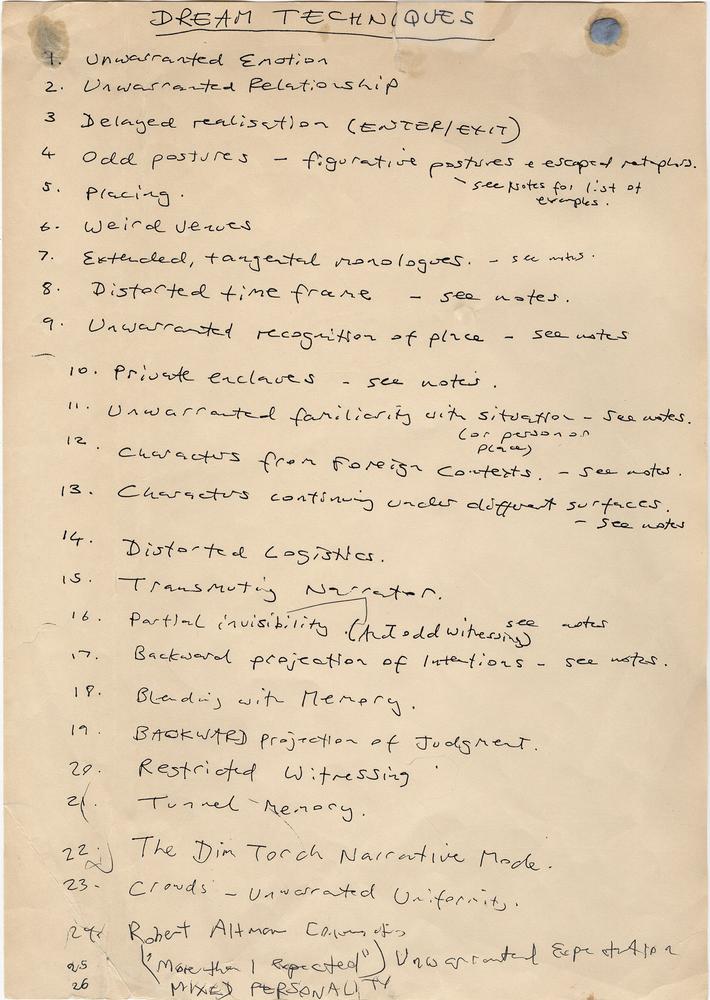 DREAM TECHNIQUES
1. Unwarranted Emotion
2. Unwarranted Relationship
3 Delayed realisation (ENTER/EXIT)
4 Odd postures – figurative postures & escaped metaphors.
see Notes for list of
examples.
5. Placing.
6. Weird venues
7. Extended, tangental monologues. – see notes.
8. Distorted time frame – see notes.
9. Unwarranted recognition of place – see notes
10. Private enclaves – see notes.
11. Unwarranted familiarity with situation – see notes.
(or person or
place)
12. Characters from Foreign Contexts. – see notes.
13. Characters continuing under different surfaces.
– see notes
14. Distorted Logistics.
15. Transmuting Narrator.
16. Partial invisibility. (And odd witnessing) see notes
17. Backward projection of Intentions – see notes.
18. Blending with Memory.
19. BACKWARD projection of Judgment.
20. Restricted Witnessing
21. Tunnel Memory.
22. The Dim Torch Narrative Mode.
23. Crowds – Unwarranted Uniformity.
24. Robert Altman
25 ("More than 1 Expected") Unwarranted Expectation
26 MIXED PERSONALITY